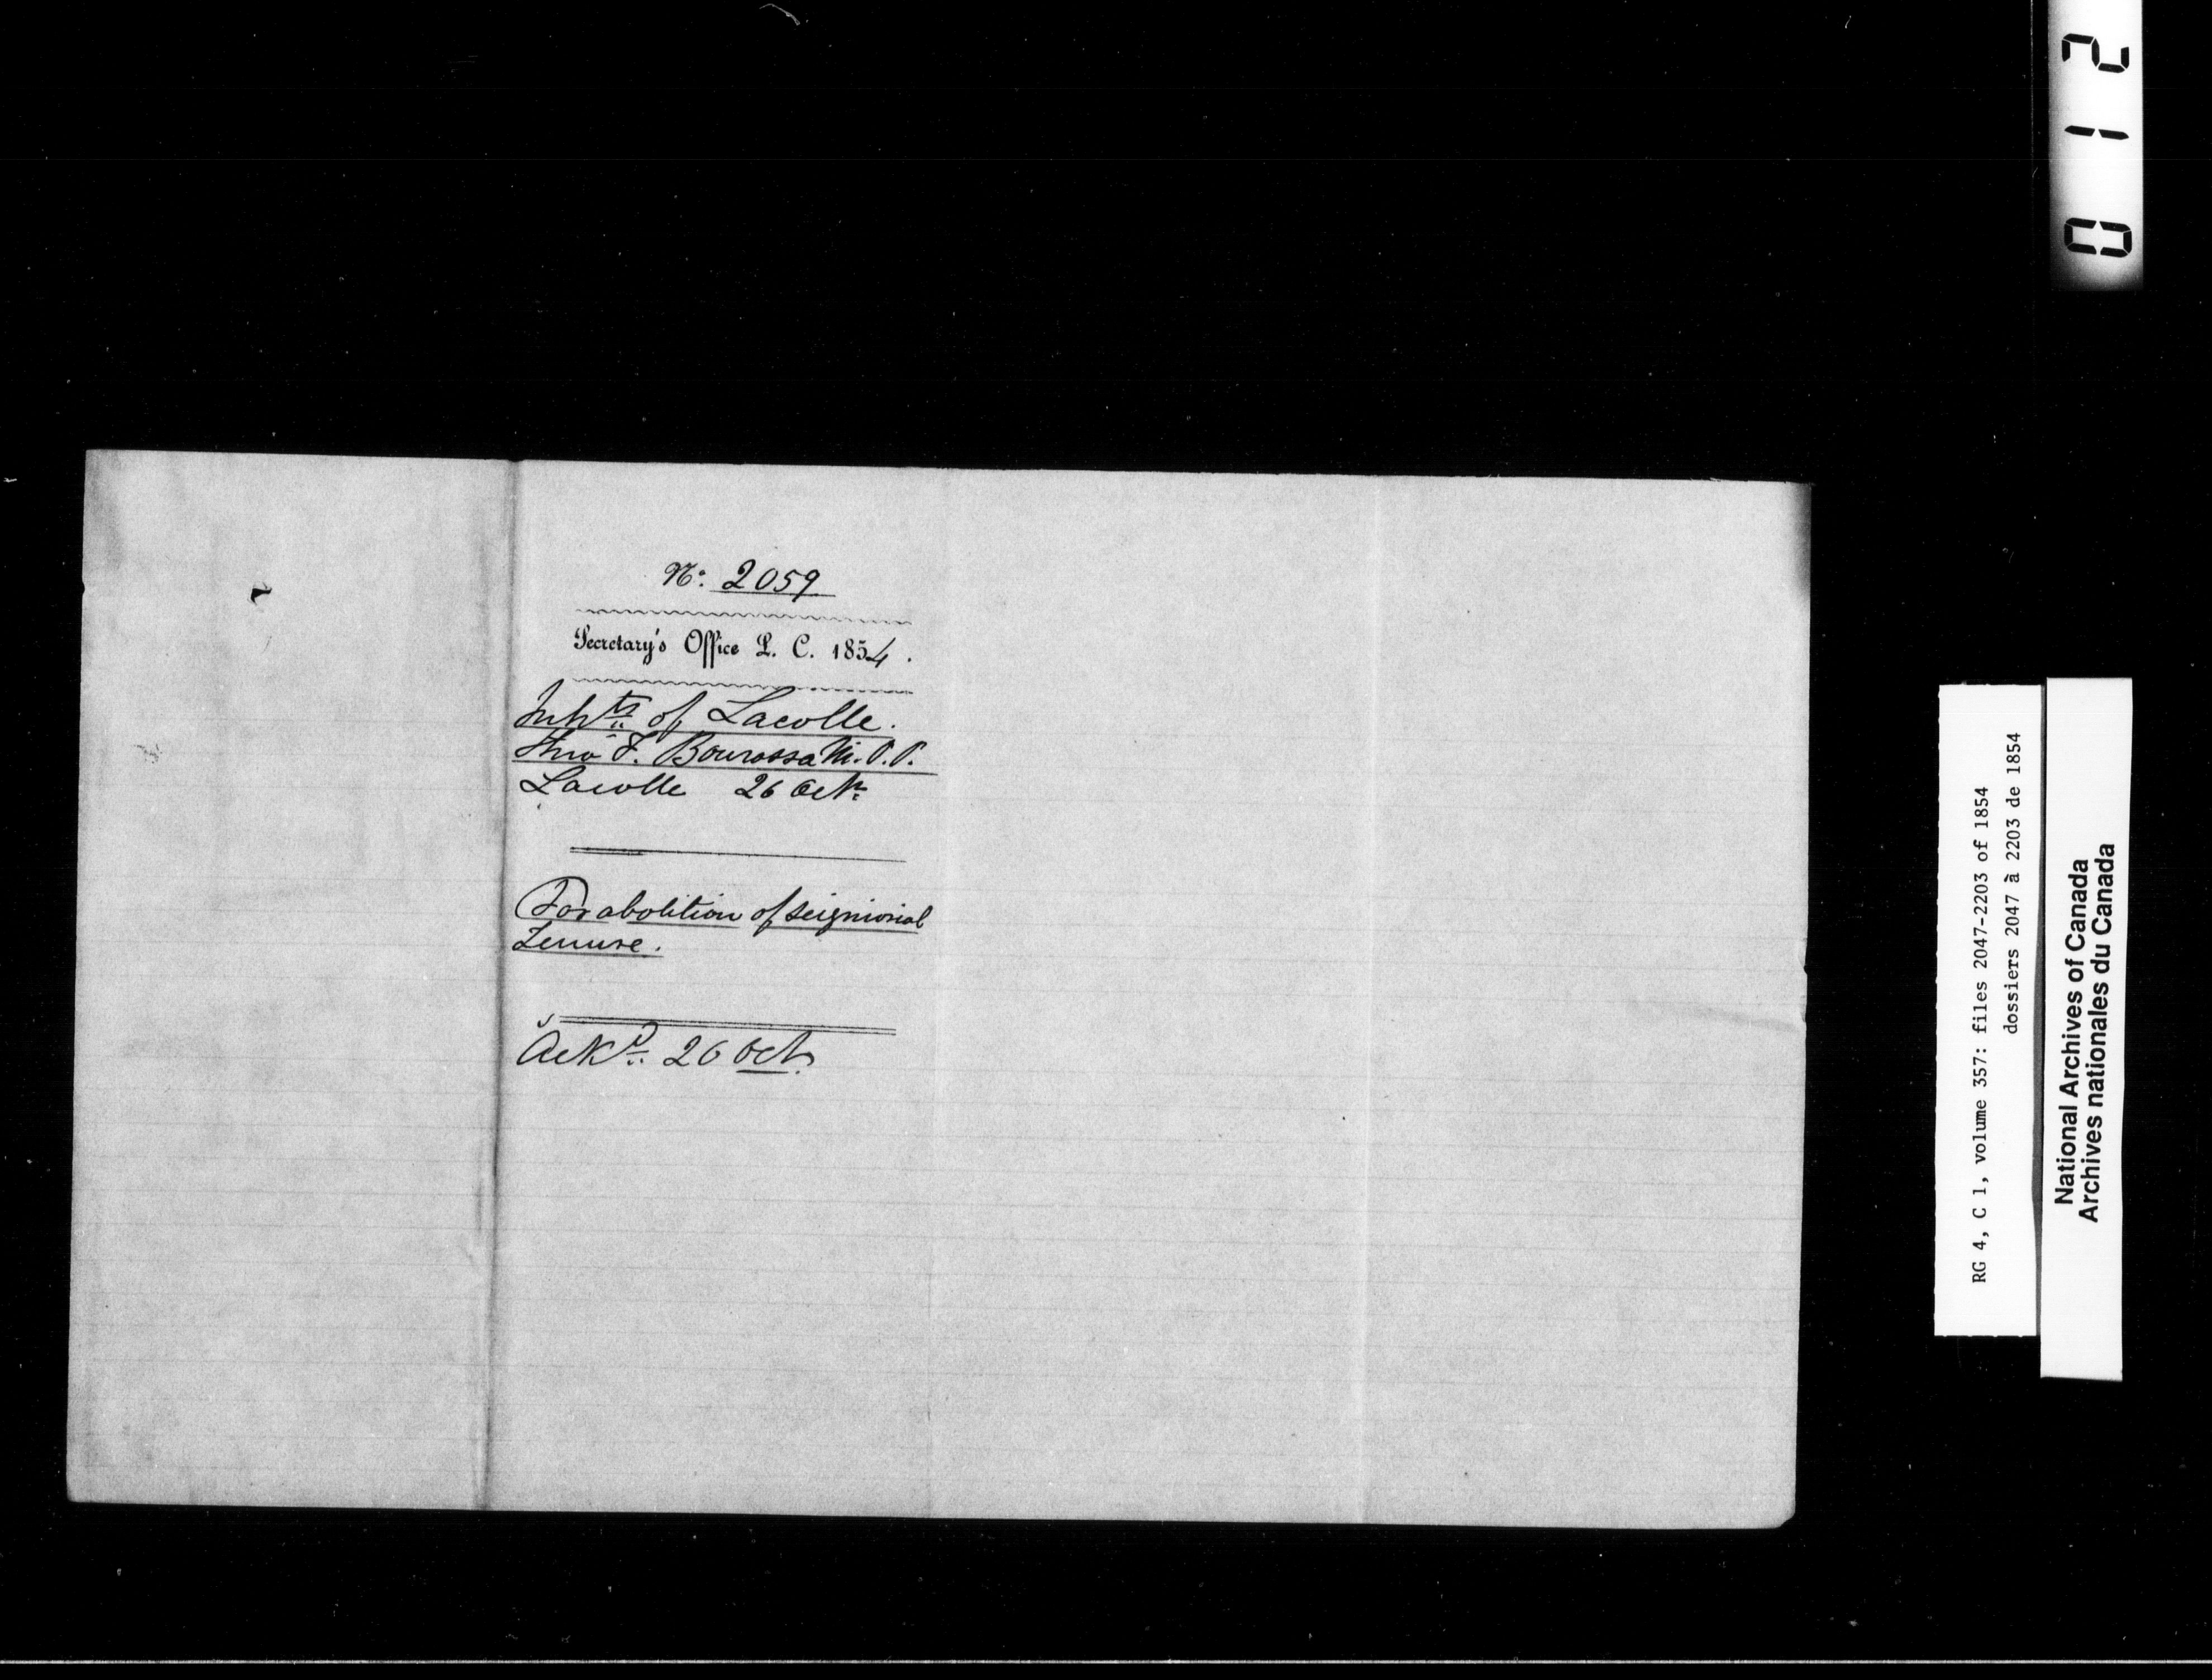 No. 2059
Secretary's Office L. C. 1854.
Inhts of Lacolle.
Thro F. Bourassa M.P.P.
Lacolle 26 Octr
For abolition of seigniorial
Tenure.
Ackd. 26 Oct.
0 1 2
RG 4, C 1, volume 357: files 2047-2203 of 1854
dossiers 2047 à 2203 de 1854
National Archives of Canada
Archives nationales du Canada